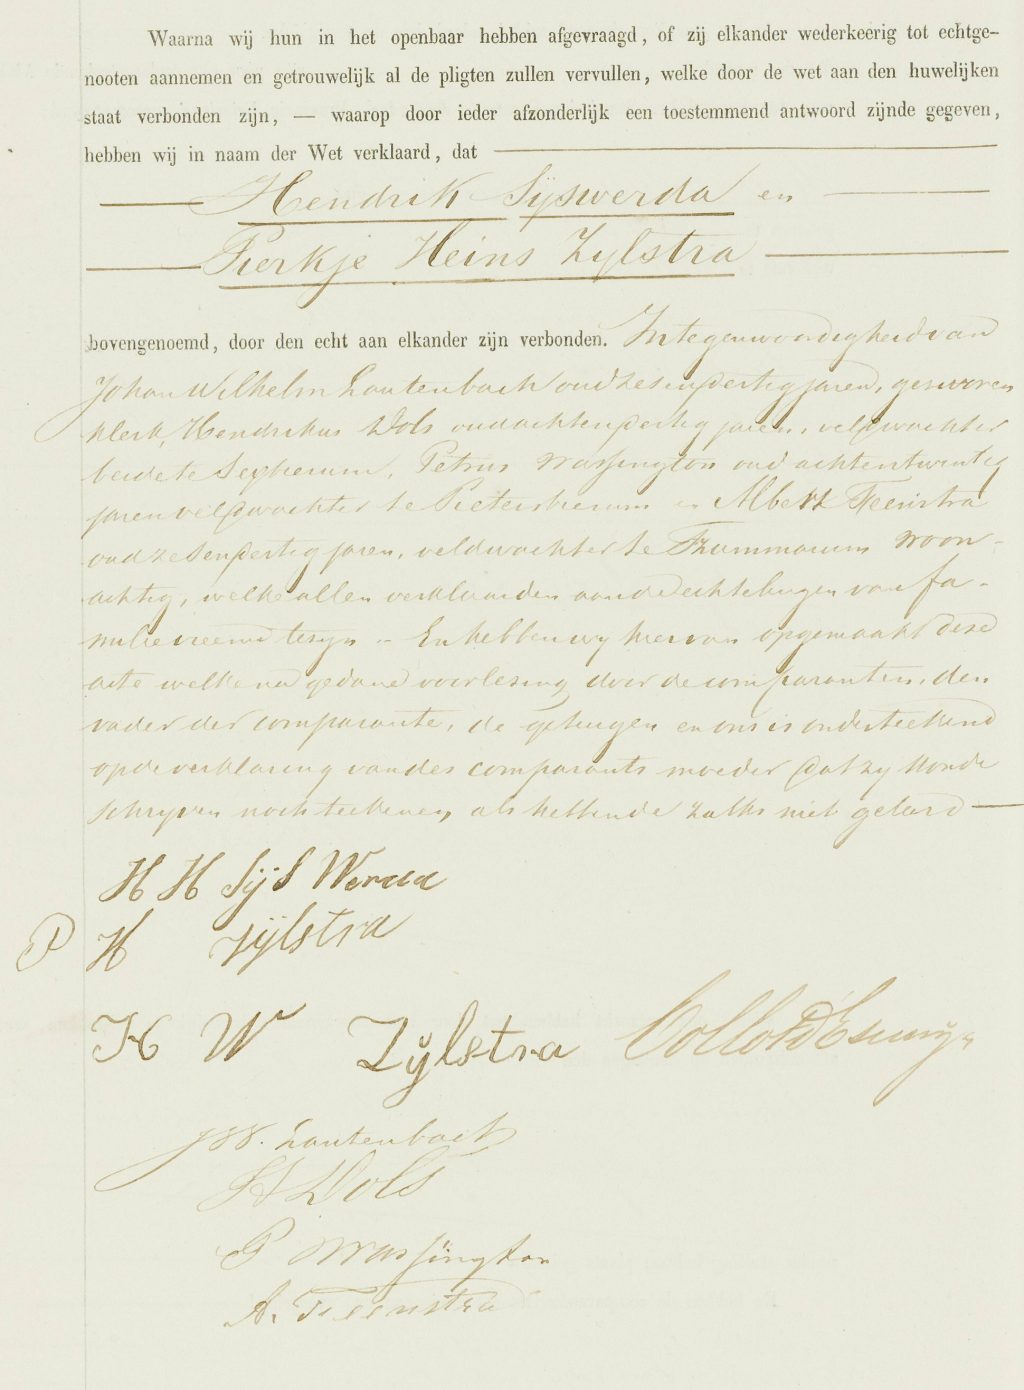 Waarna wij hun in het openbaar hebben afgevraagd, of zij elkander wederkeerig tot echtge-
nooten aannemen en getrouwelijk al de pligten zullen vervullen, welke door de wet aan den huwelijken
staat verbonden zijn, — waarop door ieder afzonderlijk een toestemmend antwoord zijnde gegeven,
hebben wij in naam der Wet verklaard, dat
Hendrik Sijswerda en
Pierkje Heins Zylstra
bovengenoemd, door den echt aan elkander zijn verbonden. In tegenwoordigheid van
Johan Wilhelm Lautenbach oud zesendertig jaren, gezworen
klerk, Hendrikus Dols oud achtendertig jaren, veldwachter
beide te Sexbierum, Petrus Wassington oud achtentwintig
jaren veldwachter te Pietersbierum en Albert Feenstra
oud zesendertig jaren, veldwachter te Tzummarum woon-
achtig, welke allen verklaarden aan de echtelingen van fa-
milie vreemd te zijn. En hebben wy hiervan opgemaakt deze
acte welke na gedane voorlezing door de comparanten, den
vader der comparante, de getuigen en ons is onderteekend
op de verklaring van des comparants moeder dat zy konde
schryven noch teekenen, als hebbende zulks niet geleerd
H H Sijs Werda
P H Zijlstra
H W Zijlstra Collot d'Escury
JW. Lautenbach
H Dols
P Wassington
A. Feenstra